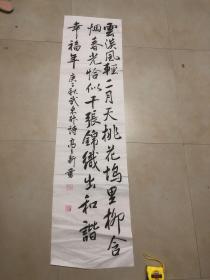 雲淡風輕二月天桃花塢里柳含
烟春光恰似千張錦織出和諧
幸福年 庚